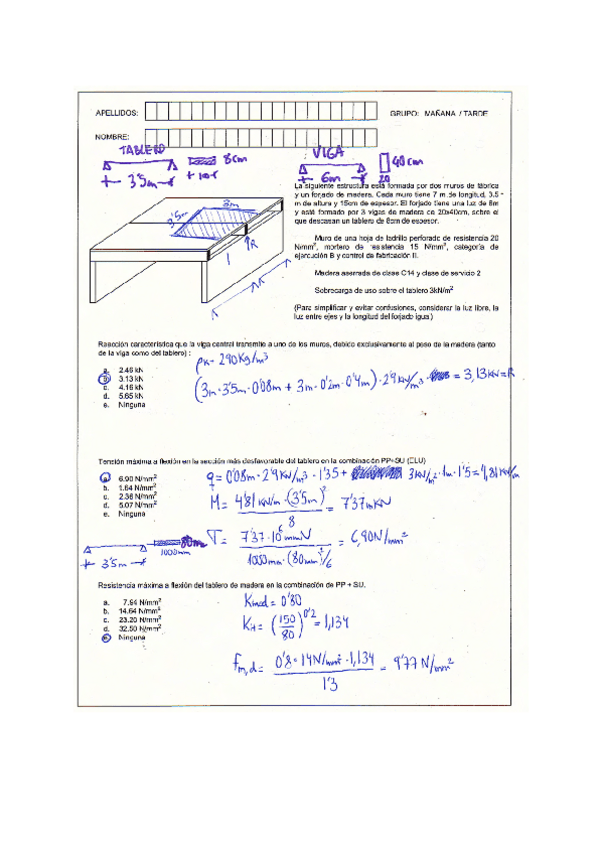 APELLIDOS:
GRUPO: MAÑANA / TARDE
NOMBRE:
TABLERO
8cm
3'5m
VIGA
40cm
6m
20
3m
3'5m
R
La siguiente estructura está formada por dos muros de fábrica
y un forjado de madera. Cada muro tiene 7 m de longitud, 3.5
m de altura y 15cm de espesor. El forjado tiene una luz de 6m
y está formado por 3 vigas de madera de 20x40cm, sobre el
que descansan un tablero de 8cm de espesor.
Muro de una hoja de ladrillo perforado de resistencia 20
N/mm², mortero de resistencia 15 N/mm², categoría de
ejecución B y control de fabricación II.
Madera aserrada de clase C14 y clase de servicio 2
Sobrecarga de uso sobre el tablero 3kN/m²
(Para simplificar y evitar confusiones, considerar la luz libre, la
luz entre ejes y la longitud del forjado igual.)
Reacción característica que la viga central transmite a uno de los muros, debido exclusivamente al peso de la madera (tanto
de la viga como del tablero) :
ρk = 290 Kg/m³
a. 2.46 kN
b. 3.13 kN
c. 4.16 kN
d. 5.65 kN
e. Ninguna
(3m · 3'5m · 0'08m + 3m · 0'2m · 0'4m) · 2'9 KN/m³ = 3,13 KN = R
Tensión máxima a flexión en la sección más desfavorable del tablero en la combinación PP+SU (ELU)
a. 6.90 N/mm²
b. 1.64 N/mm²
c. 2.36 N/mm²
d. 5.07 N/mm²
e. Ninguna
q = 0'08m · 2'9 KN/m³ · 1'35 + 3 KN/m² · 1m · 1'5 = 4,81 KN/m
M = 4'81 KN/m · (3'5m)² / 8 = 7'37 mKN
80mm
1000mm
3'5m
T = 7'37 · 10⁶ mmN / 1000mm · (80mm)²/6 = 6,90 N/mm²
Resistencia máxima a flexión del tablero de madera en la combinación de PP + SU.
a. 7.94 N/mm²
b. 14.64 N/mm²
c. 23.20 N/mm²
d. 32.50 N/mm²
e. Ninguna
Kmod = 0'80
Kh = (150/80)^0'2 = 1,134
fm,d = 0'8 · 14 N/mm² · 1,134 / 1'3 = 9'77 N/mm²